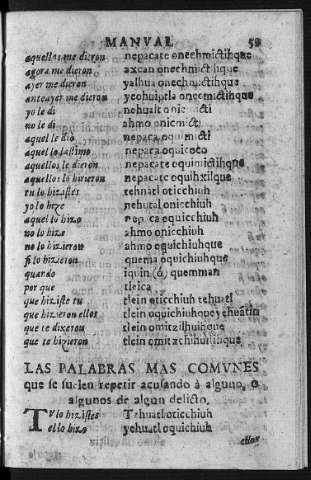 MANVAL 59
aquellas me dieron nepacate onechmictihque
agora me dieron axcan onechmictihque
ayer me dieron yalhua onechmictihque
anteayer me dieron yeohuiptla onechmictihque
yo le di nehuatl onicmicti
no le di ahmo onicmicti
aquel le dio nepaca oquimicti
aquel lo lastimo nepaca oquicoco
aquellos le dieron nepacate oquimictihque
aquellos lo hirieron nepacate oquihxilque
tu lo hizistes tehuatl oticchiuh
yo lo hize nehuatl onicchiuh
aquel lo hizo nepaca oquicchiuh
no lo hizo ahmo onicchiuh
no lo hizieron ahmo oquichiuhque
si lo hizieron quema oquichiuhque
quando iquin (ó) quemman
por que tleica
que hiziste tu tlein oticchiuh tehuatl
que hizieron ellos tlein oquichiuhque yehuatin
que te dixeron tlein omitzilhuihque
que te hizieron tlein omitzchihuilihque
LAS PALABRAS MAS COMVNES
que se suelen repetir acusando à alguno, o
algunos de algun delicto.
TV lo hizistes Tehuatl oticchiuh
el lo hizo yehuatl oquichiuh
ellos